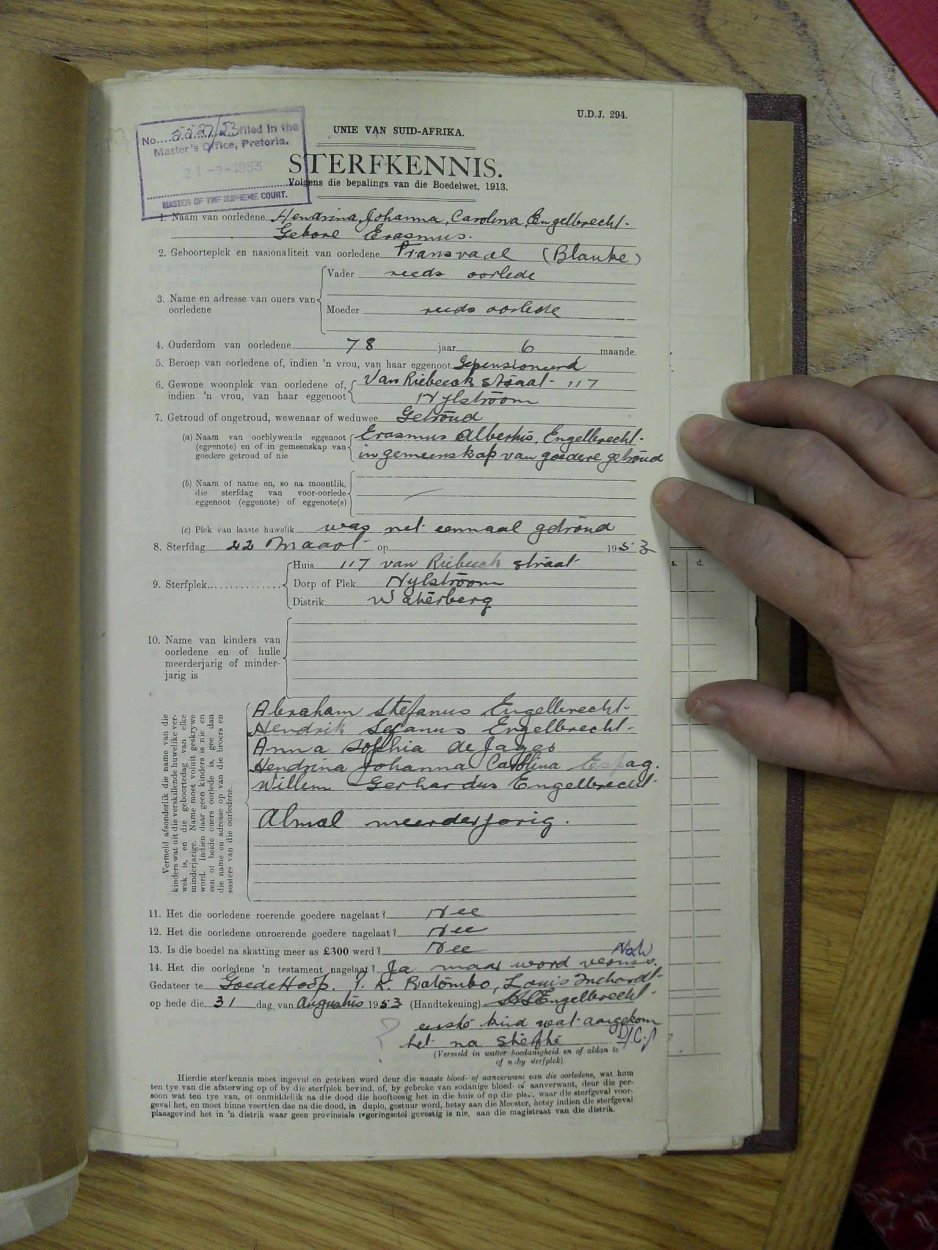 U.D.J. 294.
No. 2227/53 filed in the
Master's Office, Pretoria.
21-9-1953
MASTER OF THE SUPREME COURT.
UNIE VAN SUID-AFRIKA.
STERFKENNIS.
Volgens die bepalings van die Boedelwet, 1913.
1. Naam van oorledene Hendrina Johanna Carolina Engelbrecht
Gebore Erasmus.
2. Geboorteplek en nasionaliteit van oorledene Transvaal (Blanke)
3. Name en adresse van ouers van oorledene
Vader reeds oorlede
Moeder reeds oorlede
4. Ouderdom van oorledene 78 jaar 6 maande.
5. Beroep van oorledene of, indien 'n vrou, van haar eggenoot Gepensioneerd
6. Gewone woonplek van oorledene of, indien 'n vrou, van haar eggenoot
Van Riebeeck straat 117
Nylstroom
7. Getroud of ongetroud, wewenaar of weduwee Getroud
(a) Naam van oorblywende eggenoot (eggenote) en of in gemeenskap van goedere getroud of nie
Erasmus Albertus Engelbrecht
in gemeenskap van goedere getroud
(b) Naam of name en, so na moontlik, die sterfdag van voor-oorlede eggenoot (eggenote) of eggenote(s)
(c) Plek van laaste huwelik was net eenmaal getroud
8. Sterfdag 22 Maart op 1953
9. Sterfplek
Huis 117 van Riebeeck straat
Dorp of Plek Nylstroom
Distrik Waterberg
10. Name van kinders van oorledene en of hulle meerderjarig of minderjarig is
Vermeld afsonderlik die name van die kinders wat uit die verskillende huwelike verwek is, en die geboortedag van elke minderjarige. Name moet voluit geskrywe word. Indien daar geen kinders is nie en een of beide ouers oorlede is, gee dan die name en adresse op van die broers en susters van die oorledene.
Abraham Stefanus Engelbrecht
Hendrik Stefanus Engelbrecht
Anna Sofhia de Jager
Hendrina Johanna Carolina Espag.
Willem Gerhardus Engelbrecht
Almal meerderjarig.
11. Het die oorledene roerende goedere nagelaat? Nee
12. Het die oorledene onroerende goedere nagelaat? Nee
13. Is die boedel na skatting meer as £300 werd? Nee
14. Het die oorledene 'n testament nagelaat? Ja maar word
Gedateer te Goede Hoop.
op hede die 31 dag van Augustus 1953 (Handtekening) Engelbrecht
eerste kind wat aangekom
het na sterfte
(Vermeld in watter hoedanigheid en of aldan te
of naby sterfplek)
Hierdie sterfkennis moet ingevul en geteken word deur die naaste bloed- of aanverwant van die oorledene, wat hom
ten tye van die afsterwing op of by die sterfplek bevind, of, by gebreke van sodanige bloed- of aanverwant, deur die per-
soon wat ten tye van, of onmiddellik na die dood die hooftoesig het in die huis of op die plek, waar die sterfgeval voor-
geval het, en moet binne veertien dae na die dood, in duplo, gestuur word, hetsy aan die Meester, hetsy indien die sterfgeval
plaasgevind het in 'n distrik waar geen provinsiale regeringsetel gevestig is nie, aan die magistraat van die distrik.
s. d.